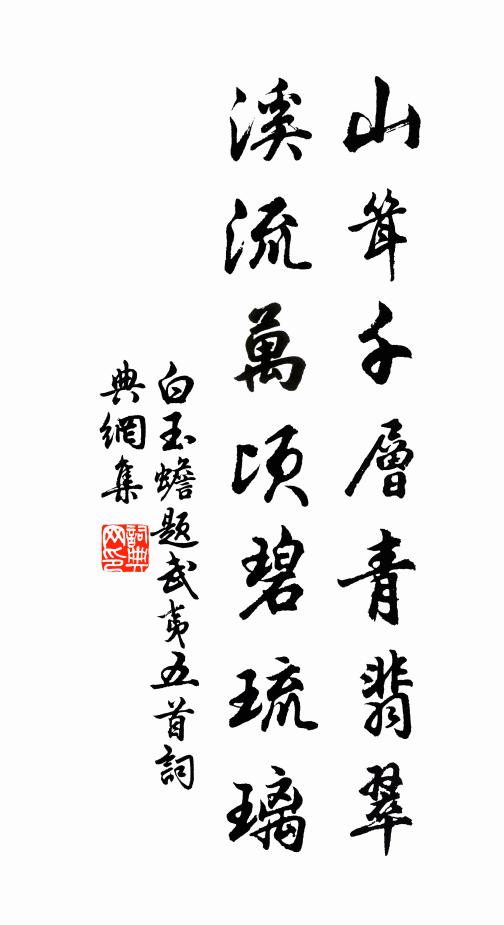 山聳千層青翡翠
溪流萬頃碧琉璃
白玉蟾題武夷五首詞
典網集
詞典
网印